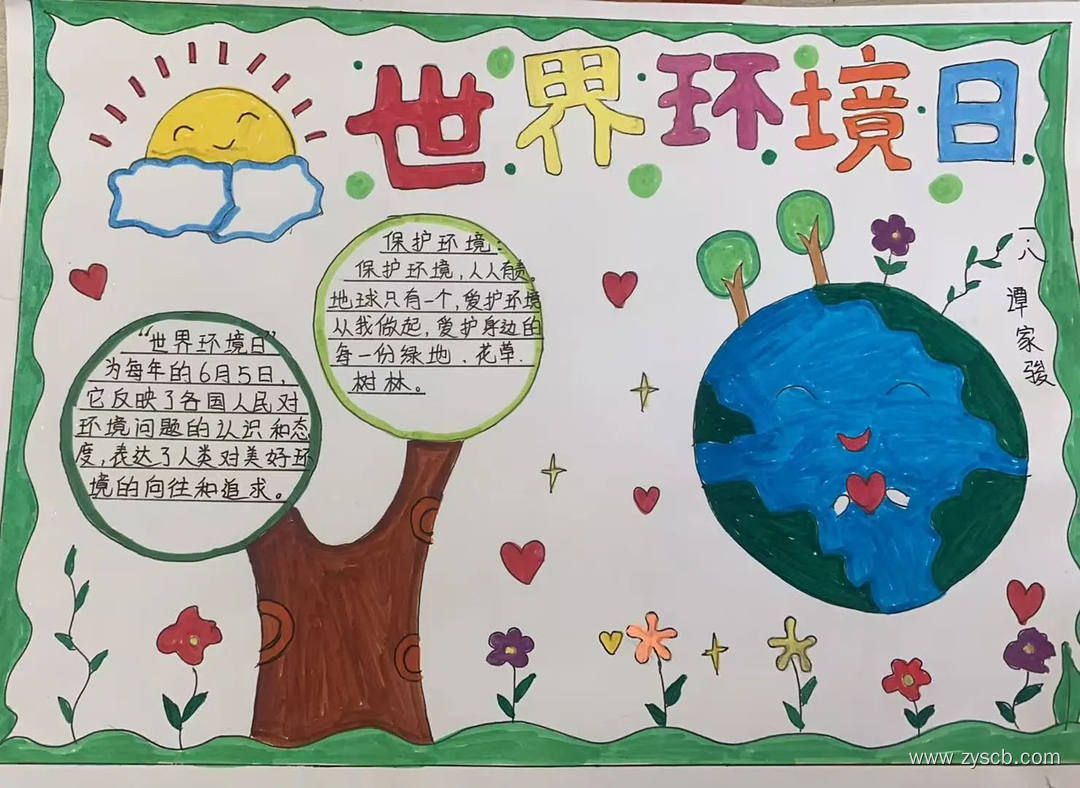 世界环境日
保护环境:
保护环境,人人有责。
地球只有一个,爱护环境
从我做起,爱护身边的
每一份绿地、花草.
树林。
"世界环境日"
为每年的6月5日,
它反映了各国人民对
环境问题的认识和态
度,表达了人类对美好环
境的向往和追求。
一.八
谭家骏
www.zyscb.com